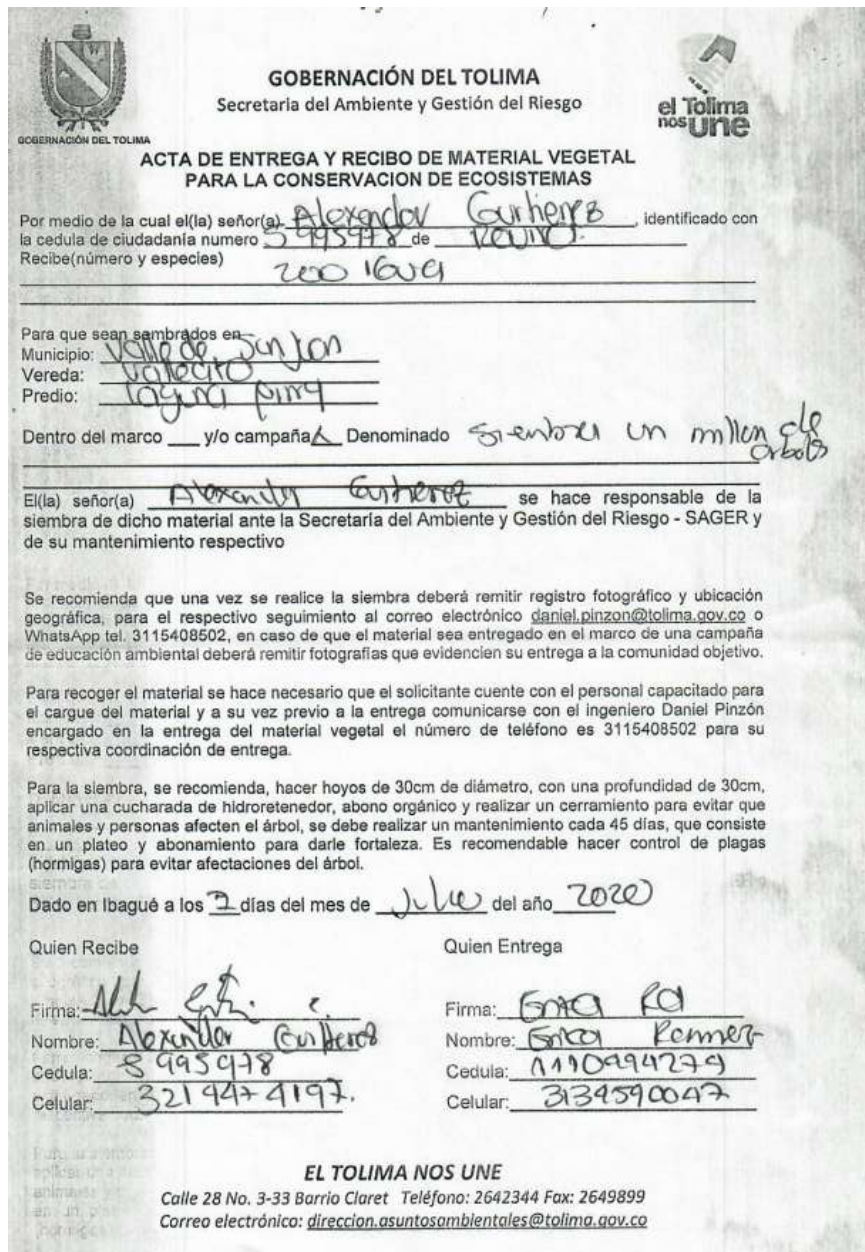 GOBERNACIÓN DEL TOLIMA
Secretaria del Ambiente y Gestión del Riesgo
GOBERNACIÓN DEL TOLIMA
el Tolima
nos une
ACTA DE ENTREGA Y RECIBO DE MATERIAL VEGETAL
PARA LA CONSERVACION DE ECOSISTEMAS
Por medio de la cual el(la) señor(a) Alexander Gutierrez, identificado con
la cedula de ciudadanía numero 5995978 de
Recibe(número y especies)
200
Para que sean sembrados en
Municipio: Valle de San Juan
Vereda: Vallecito
Predio: Laguna
Dentro del marco ___ y/o campaña X Denominado Siembra un millon de
arboles
El(la) señor(a) Alexander Gutierrez se hace responsable de la
siembra de dicho material ante la Secretaria del Ambiente y Gestión del Riesgo - SAGER y
de su mantenimiento respectivo
Se recomienda que una vez se realice la siembra deberá remitir registro fotográfico y ubicación
geográfica, para el respectivo seguimiento al correo electrónico daniel.pinzon@tolima.gov.co o
WhatsApp tel. 3115408502, en caso de que el material sea entregado en el marco de una campaña
de educación ambiental deberá remitir fotografías que evidencien su entrega a la comunidad objetivo.
Para recoger el material se hace necesario que el solicitante cuente con el personal capacitado para
el cargue del material y a su vez previo a la entrega comunicarse con el ingeniero Daniel Pinzón
encargado en la entrega del material vegetal el número de teléfono es 3115408502 para su
respectiva coordinación de entrega.
Para la siembra, se recomienda, hacer hoyos de 30cm de diámetro, con una profundidad de 30cm,
aplicar una cucharada de hidroretenedor, abono orgánico y realizar un cerramiento para evitar que
animales y personas afecten el árbol, se debe realizar un mantenimiento cada 45 días, que consiste
en un plateo y abonamiento para darle fortaleza. Es recomendable hacer control de plagas
(hormigas) para evitar afectaciones del árbol.
Dado en Ibagué a los días del mes de Julio del año 2020
Quien Recibe Quien Entrega
Firma: Firma:
Nombre: Alexander Gutierrez Nombre:
Cedula: 5995978 Cedula: 1110994279
Celular: 321 947 4197. Celular: 3139590047
EL TOLIMA NOS UNE
Calle 28 No. 3-33 Barrio Claret Teléfono: 2642344 Fax: 2649899
Correo electrónico: direccion.asuntosambientales@tolima.gov.co